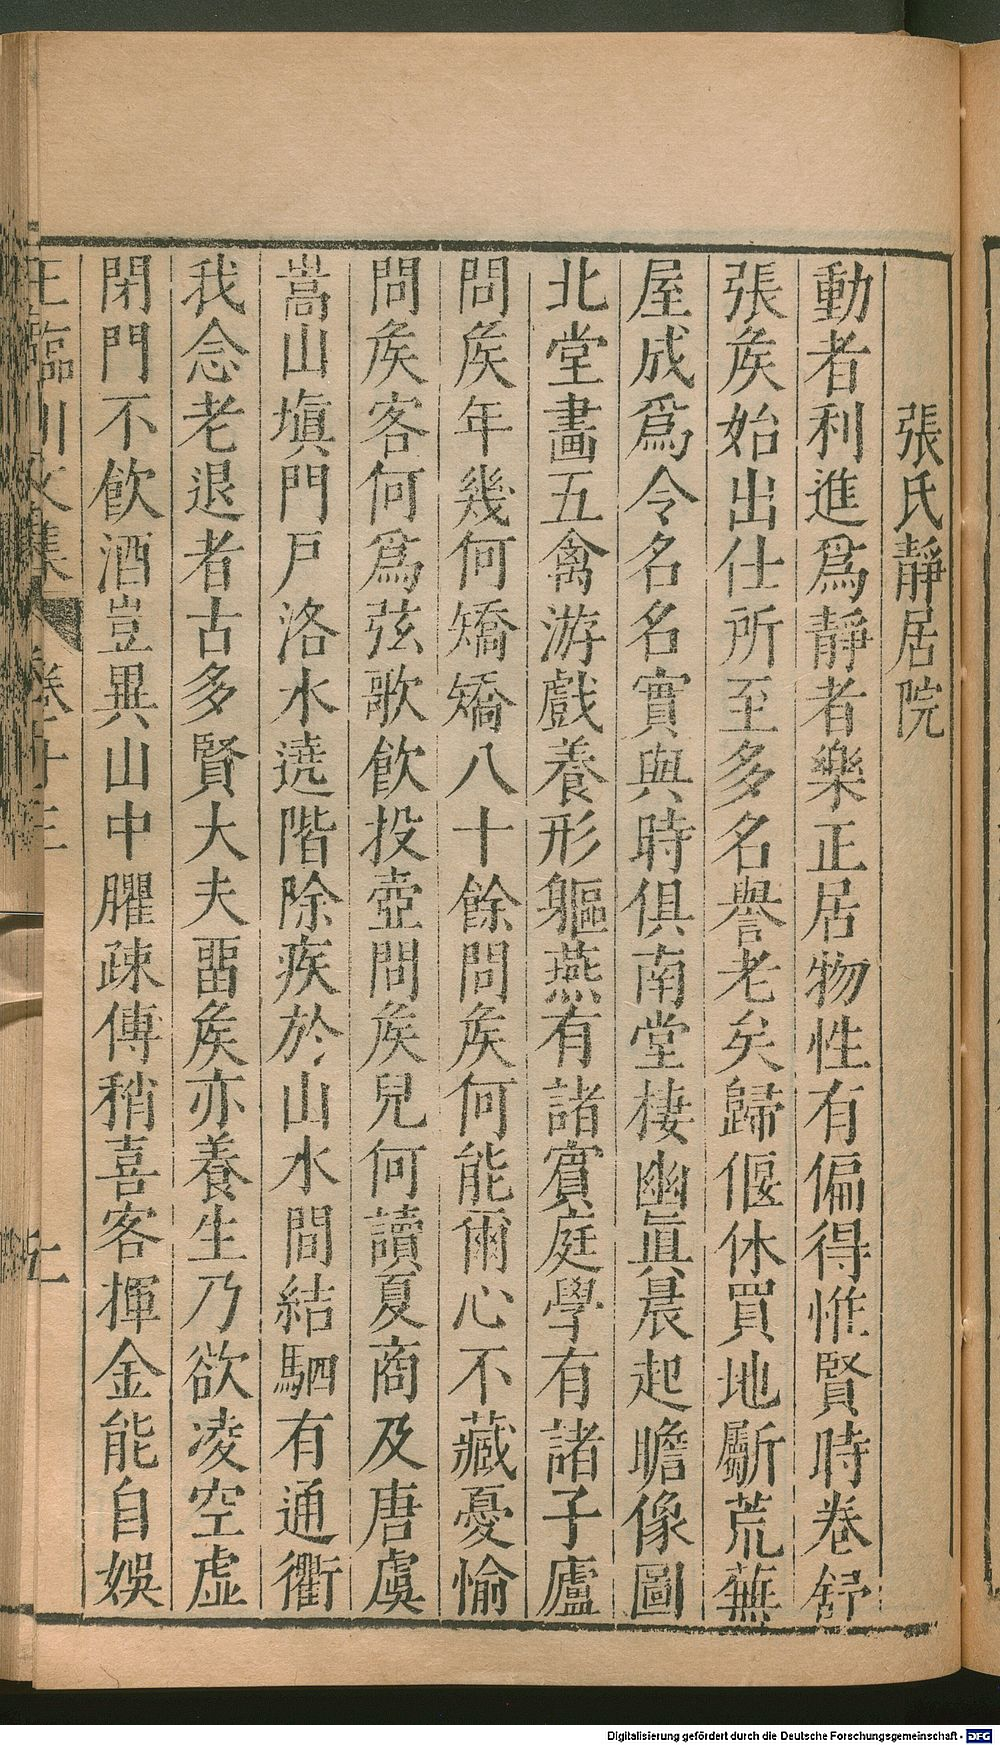 張氏靜居院
動者利進爲靜者樂正居物性有偏得惟賢時卷舒
張矦始出仕所至多名譽老矣歸偃休買地斸荒蕪
屋成爲令名名實與時俱南堂棲幽眞晨起瞻像圖
北堂畫五禽游戲養形軀燕有諸賔庭學有諸子廬
問矦年幾何矯矯八十餘問矦何能爾心不藏憂愉
問矦客何爲弦歌飮投壺問矦兒何讀夏商及唐虞
嵩山塡門戶洛水遶階除疾於山水間結駟有通衢
我念老退者古多賢大夫畱矦亦養生乃欲凌空虛
閉門不飮酒豈異山中臞疎傳稍喜客揮金能自娛
王臨川文集 卷十三 七
Digitalisierung gefördert durch die Deutsche Forschungsgemeinschaft - DFG